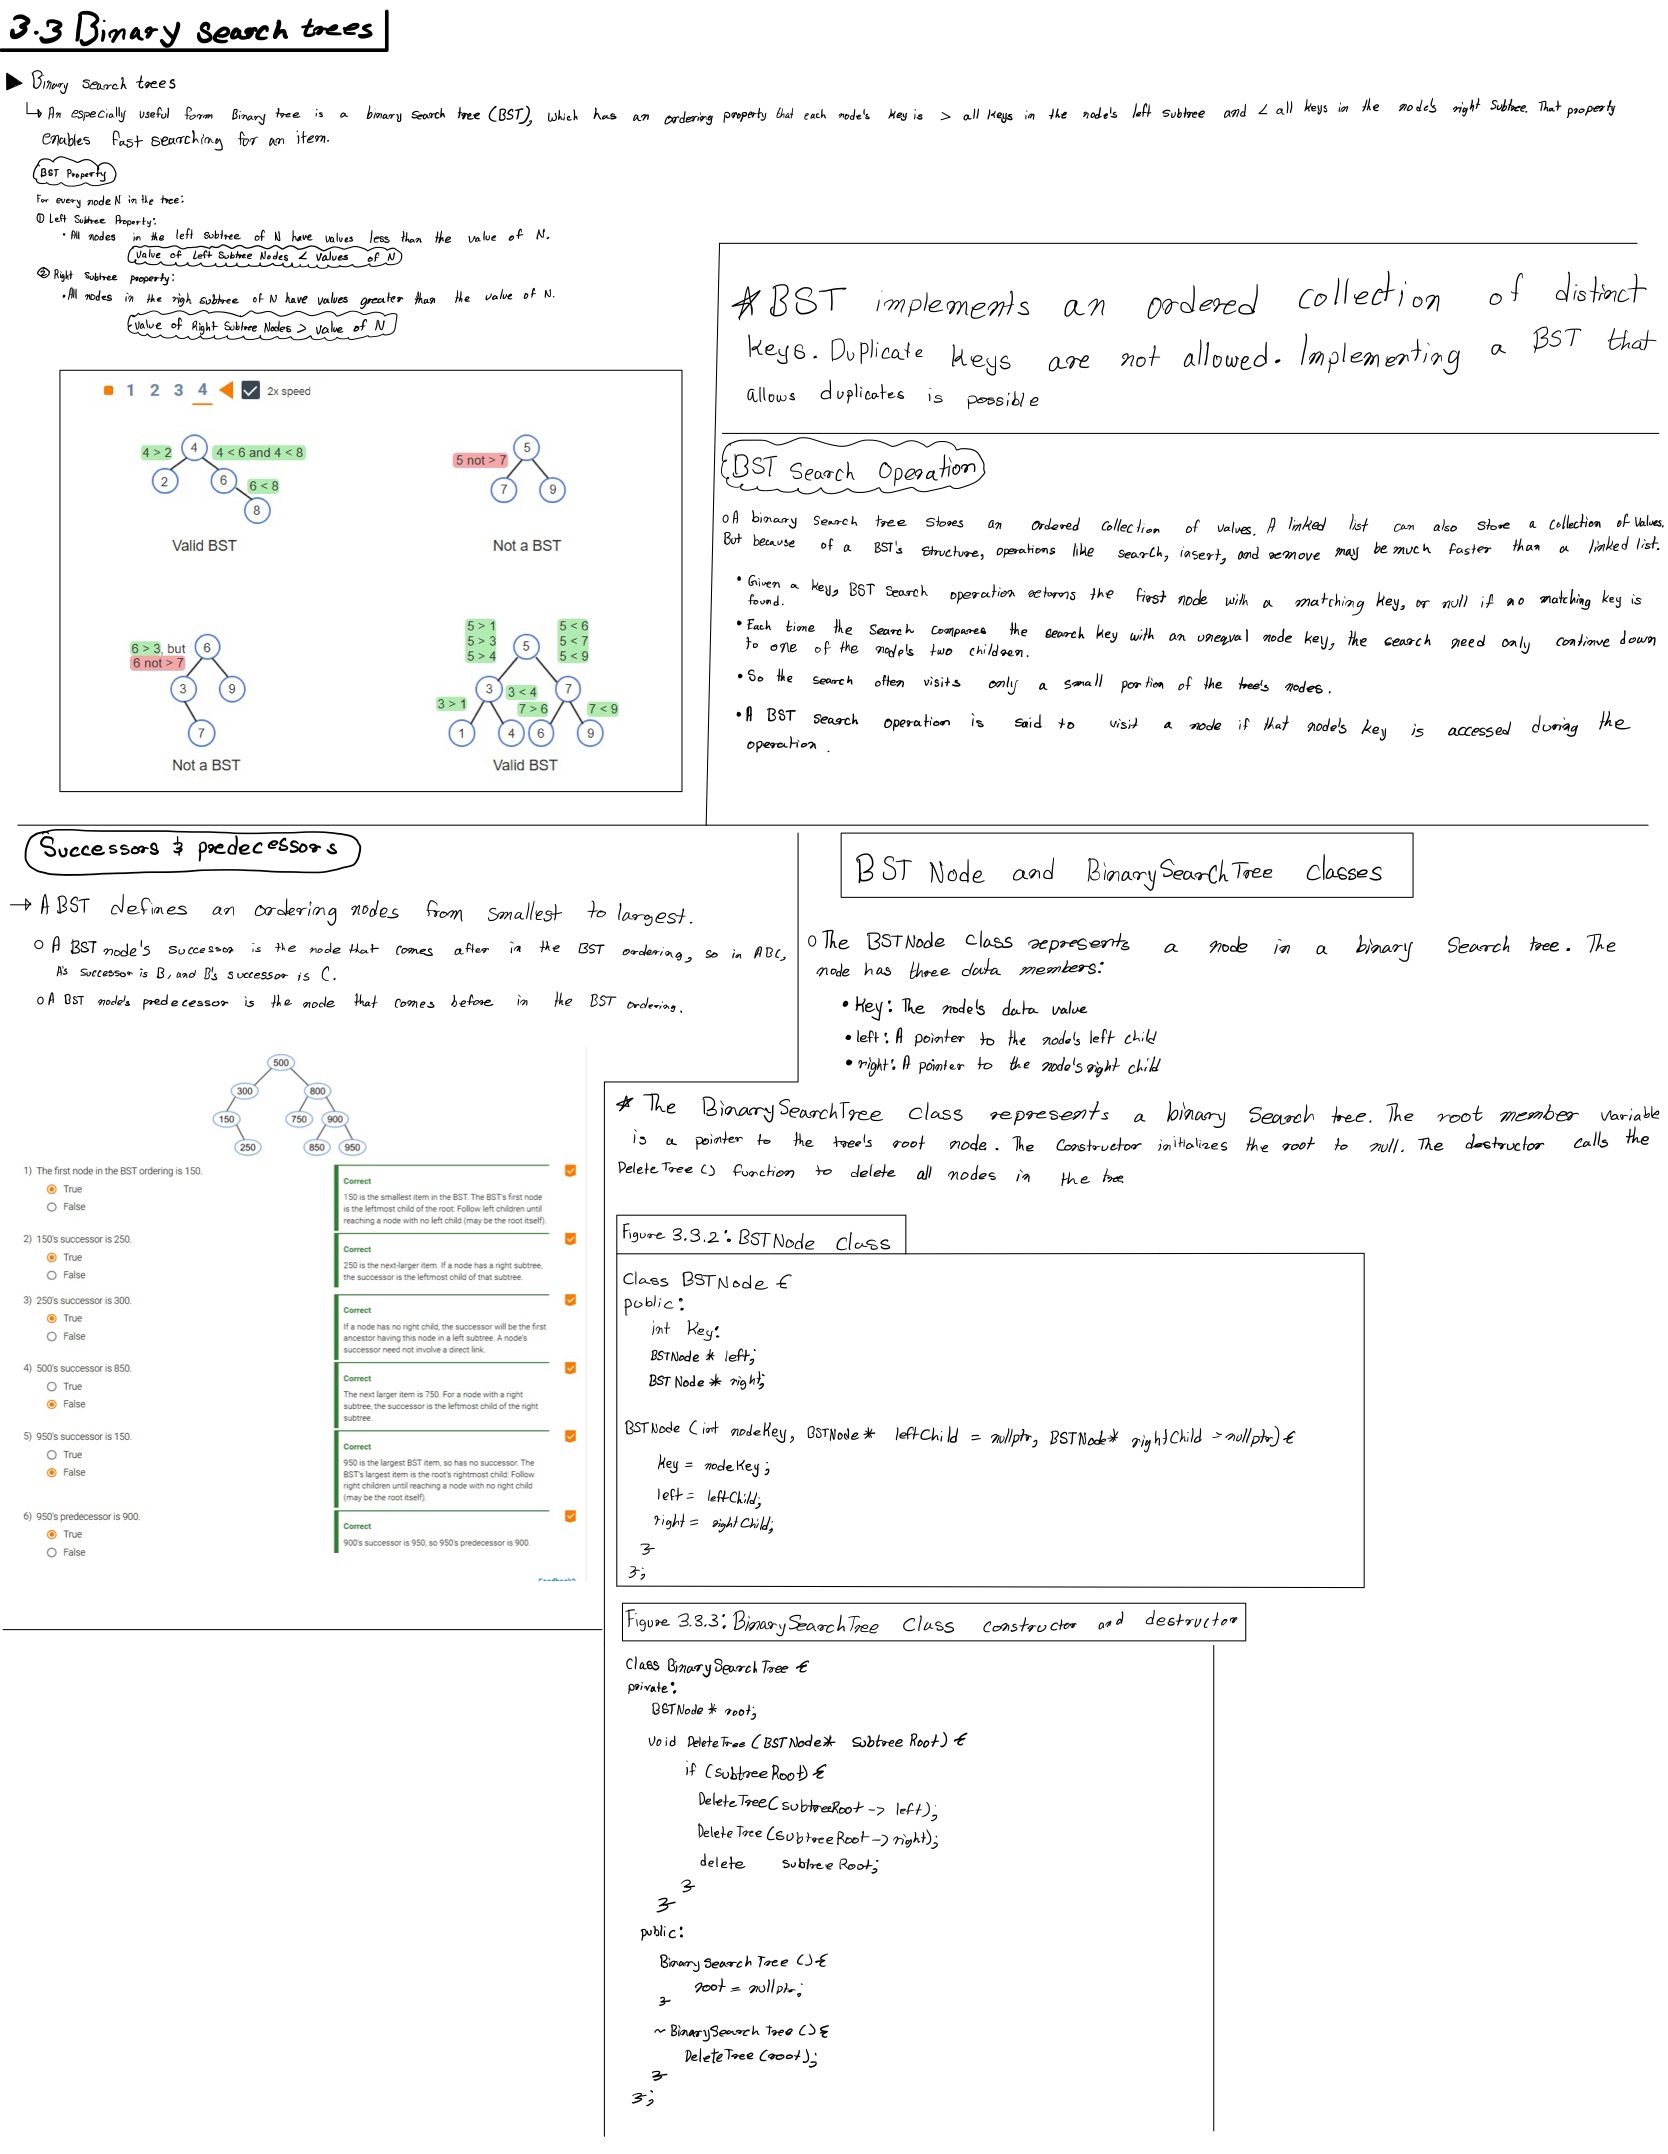 3.3 Binary search trees
▶ Binary search trees
↳ An especially useful form Binary tree is a binary search tree (BST), which has an ordering property that each node's key is > all keys in the node's left subtree and < all keys in the node's right subtree. That property
enables fast searching for an item.
BST Property
For every node N in the tree:
① Left Subtree Property:
• All nodes in the left subtree of N have values less than the value of N.
Value of Left Subtree Nodes < Values of N
② Right Subtree property:
• All nodes in the righ subtree of N have values greater than the value of N.
Value of Right Subtree Nodes > value of N
1 2 3 4 2x speed
4 > 2
4
4 < 6 and 4 < 8
2
6
6 < 8
8
Valid BST
5 not > 7
5
7
9
Not a BST
6 > 3, but
6 not > 7
6
3
9
7
Not a BST
5 > 1
5 > 3
5 > 4
5
5 < 6
5 < 7
5 < 9
3 > 1
3
3 < 4
7 > 6
7
7 < 9
1
4
6
9
Valid BST
* BST implements an ordered collection of distinct
keys. Duplicate keys are not allowed. Implementing a BST that
allows duplicates is possible
BST Search Operation
○ A binary search tree stores an ordered collection of values. A linked list can also store a collection of values.
But because of a BST's structure, operations like search, insert, and remove may be much faster than a linked list.
• Given a key, BST search operation returns the first node with a matching key, or null if no matching key is
found.
• Each time the search compares the search key with an unequal node key, the search need only continue down
to one of the node's two children.
• So the search often visits only a small portion of the tree's nodes.
• A BST search operation is said to visit a node if that node's key is accessed during the
operation.
Successors & predecessors
→ A BST defines an ordering nodes from smallest to largest.
○ A BST node's successor is the node that comes after in the BST ordering, so in ABC,
A's successor is B, and B's successor is C.
○ A BST node's predecessor is the node that comes before in the BST ordering.
500
300
800
150
750
900
250
850
950
1) The first node in the BST ordering is 150.
True
False
Correct
150 is the smallest item in the BST. The BST's first node
is the leftmost child of the root: Follow left children until
reaching a node with no left child (may be the root itself).
2) 150's successor is 250.
True
False
Correct
250 is the next-larger item. If a node has a right subtree,
the successor is the leftmost child of that subtree.
3) 250's successor is 300.
True
False
Correct
If a node has no right child, the successor will be the first
ancestor having this node in a left subtree. A node's
successor need not involve a direct link.
4) 500's successor is 850.
True
False
Correct
The next larger item is 750. For a node with a right
subtree, the successor is the leftmost child of the right
subtree.
5) 950's successor is 150.
True
False
Correct
950 is the largest BST item, so has no successor. The
BST's largest item is the root's rightmost child: Follow
right children until reaching a node with no right child
(may be the root itself).
6) 950's predecessor is 900.
True
False
Correct
900's successor is 950, so 950's predecessor is 900.
BST Node and BinarySearchTree classes
○ The BSTNode class represents a node in a binary search tree. The
node has three data members:
• Key: The node's data value
• left: A pointer to the node's left child
• right: A pointer to the node's right child
* The BinarySearchTree class represents a binary search tree. The root member variable
is a pointer to the tree's root node. The constructor initializes the root to null. The destructor calls the
DeleteTree () function to delete all nodes in the tree
Figure 3.3.2: BSTNode class
Class BSTNode {
public:
int key:
BSTNode * left;
BSTNode * right;
BSTNode (int nodeKey, BSTNode* leftChild = nullptr, BSTNode* rightChild = nullptr) {
key = nodeKey;
left = leftChild;
right = rightChild;
}
};
Figure 3.3.3: BinarySearchTree class constructor and destructor
Class BinarySearchTree {
private:
BSTNode * root;
void DeleteTree (BSTNode* subtreeRoot) {
if (subtreeRoot) {
DeleteTree(subtreeRoot -> left);
DeleteTree (subtreeRoot -> right);
delete subtreeRoot;
}
}
public:
BinarySearchTree () {
root = nullptr;
}
~ BinarySearchTree () {
DeleteTree (root);
}
};